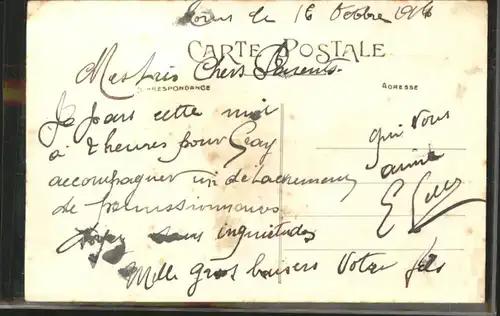 le 16 Octobre 1914
CARTE POSTALE
Mes très Chers Parents.
CORRESPONDANCE
ADRESSE
Je pars cette nuit
à 2 heures pour Gray
accompagner un détachement
de permissionnaires
Soyez sans inquiétudes
Mille gros baisers Votre fils
qui vous
aime
E